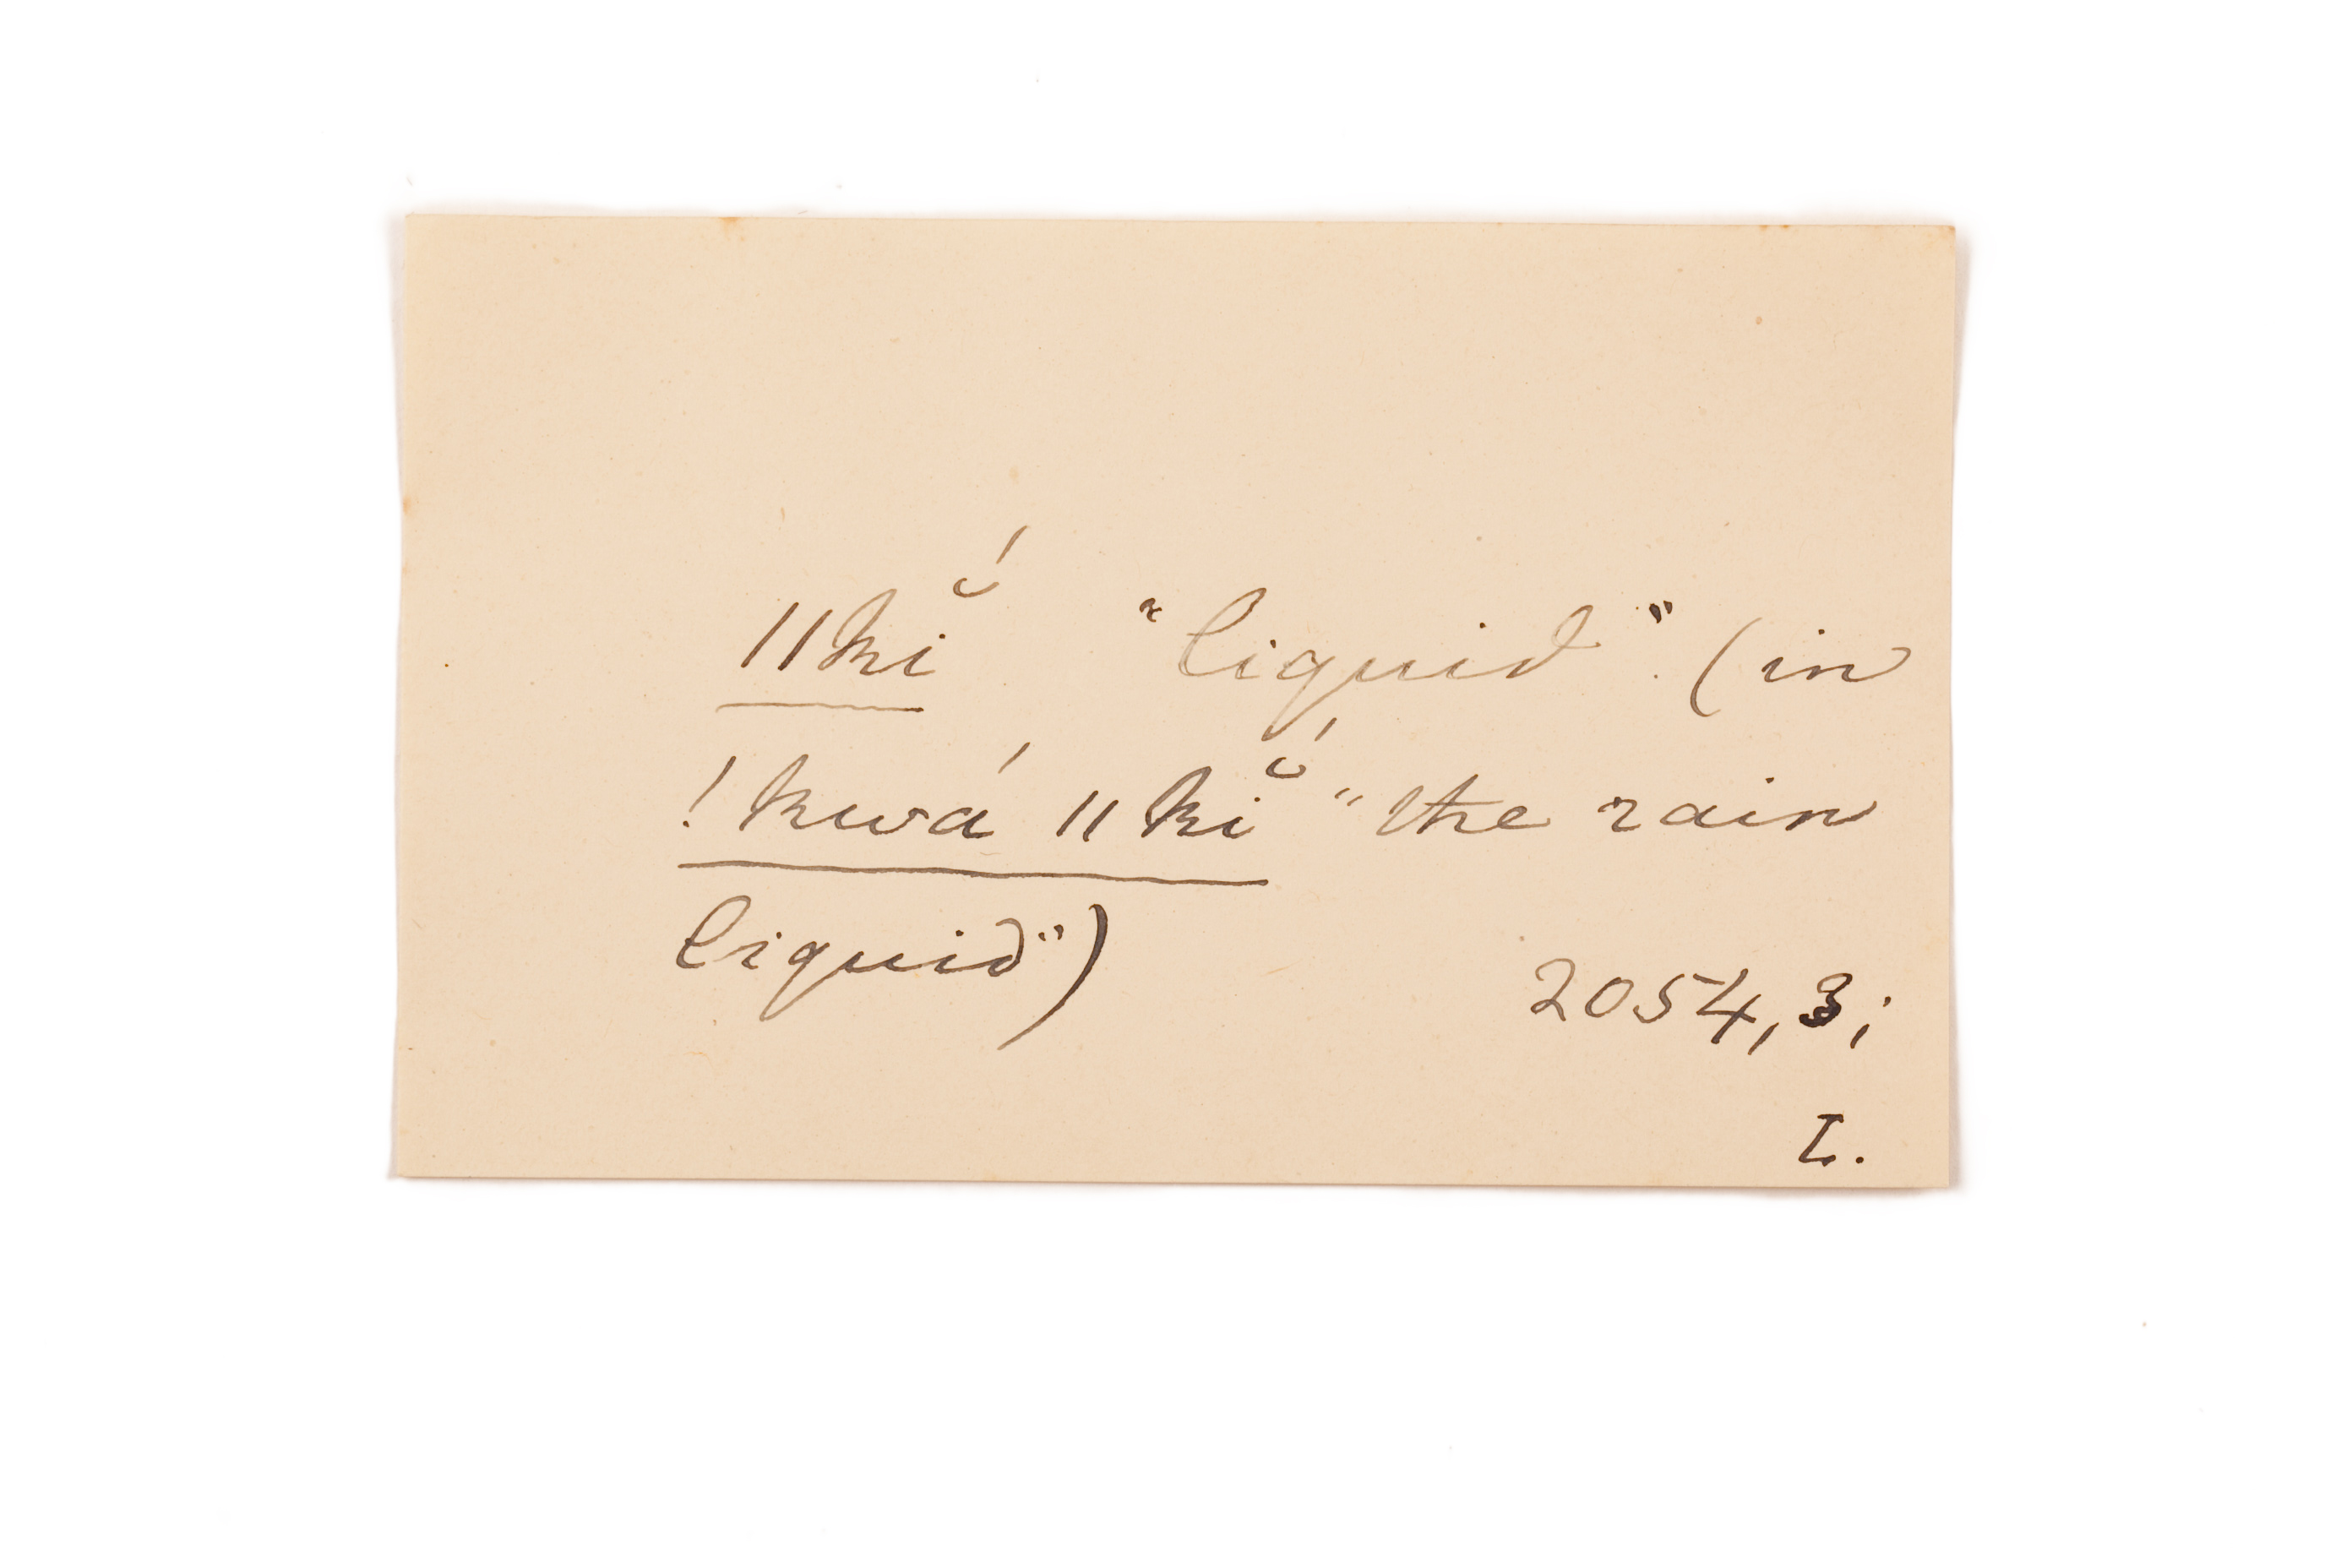 ǁkĭ́ "liquid". (in
!kwá ǁkĭ́ "the rain
liquid")
2054, 3;
L.